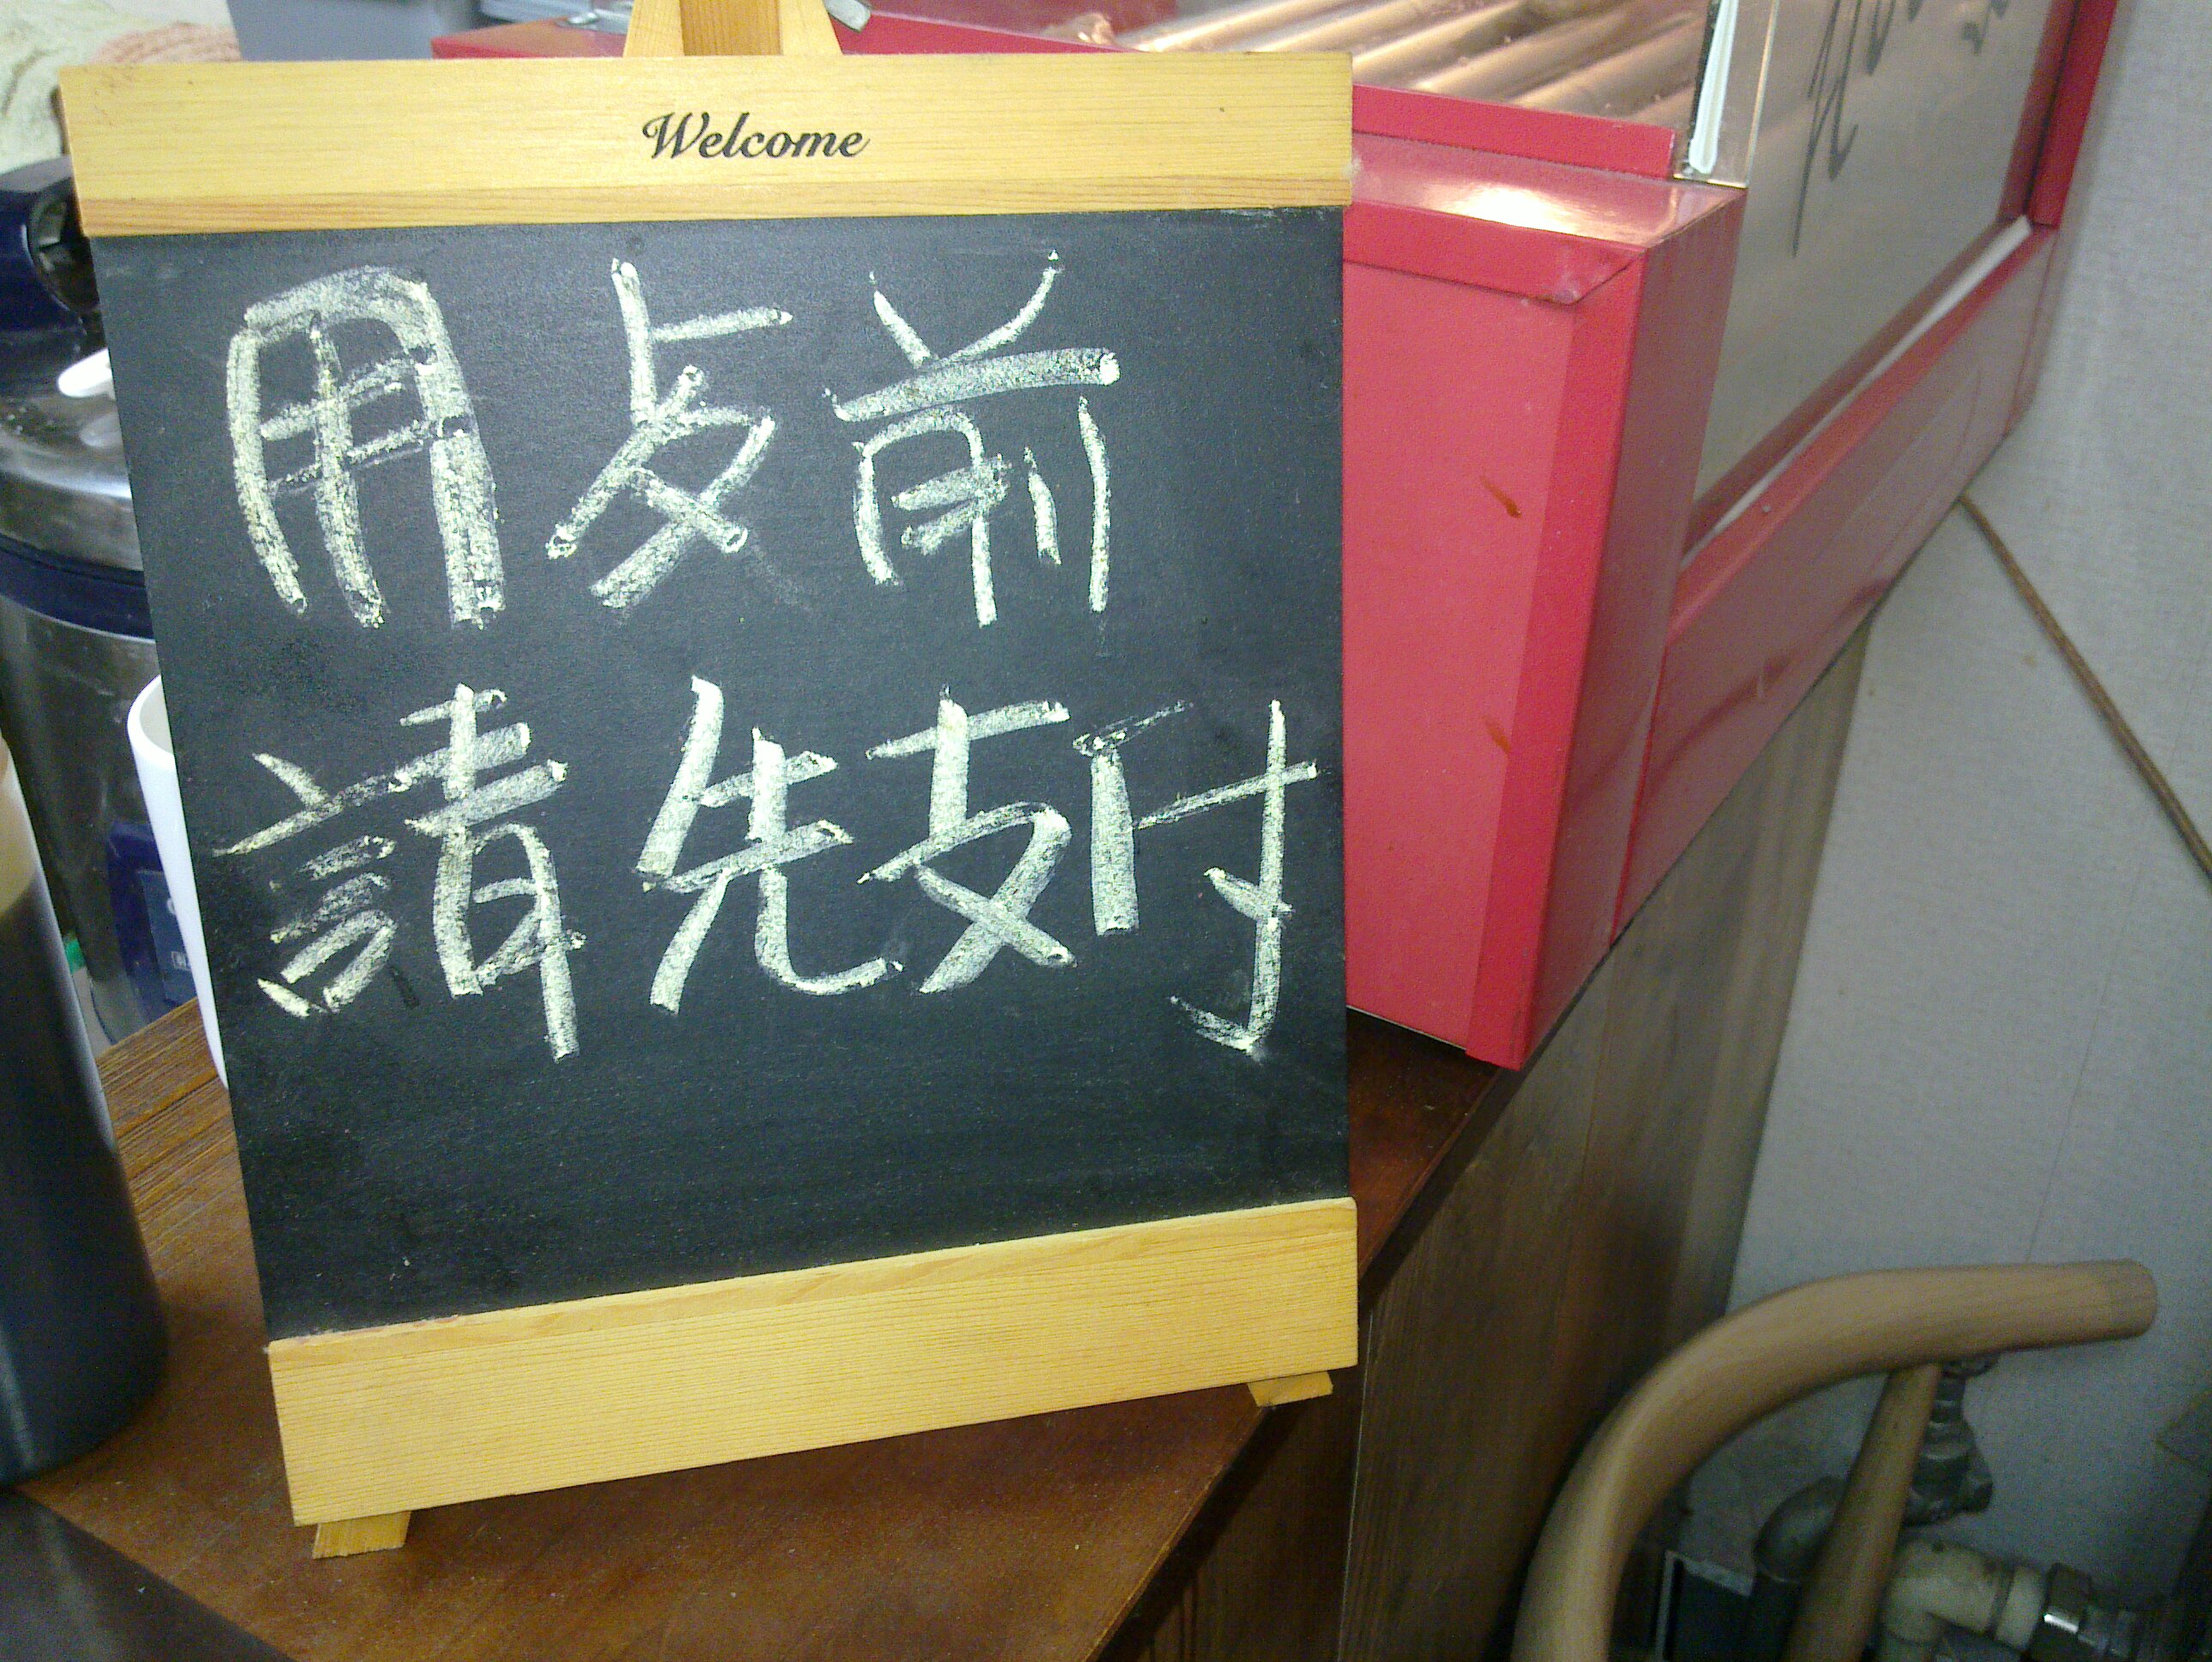 Welcome
用歺前
請先支付